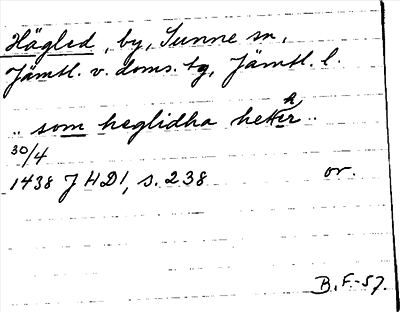 Hägled, by, Sunne sn,
Jämtl. v. doms. tg, Jämtl. l.
.. som heglidha hether ..
30/4
1438 JHD1, s. 238 or.
B.F.-57.